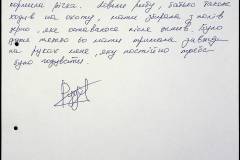 кормила річка. Ловили рибу, батько також
ходив на охоту, мати збирала з полів
зерно, яке оставалося після жнив. Було
дуже тяжко бо мати тримала завжди
на руках мене, яку постійно треба
було годувати.